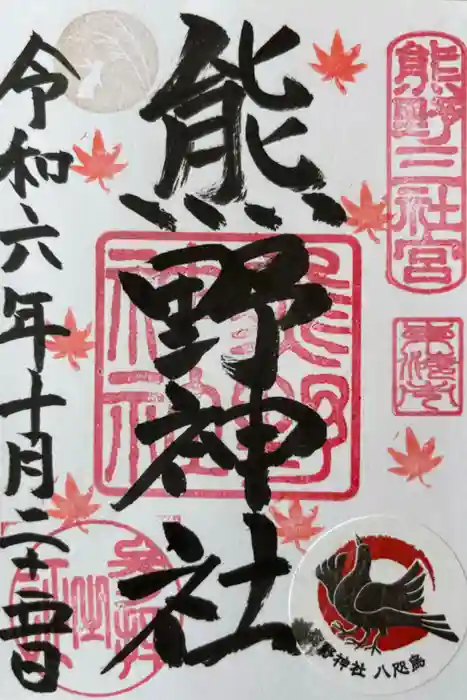 熊野三社宮
熊野神社
熊野神社
令和六年十月二十日
野神社 八咫烏